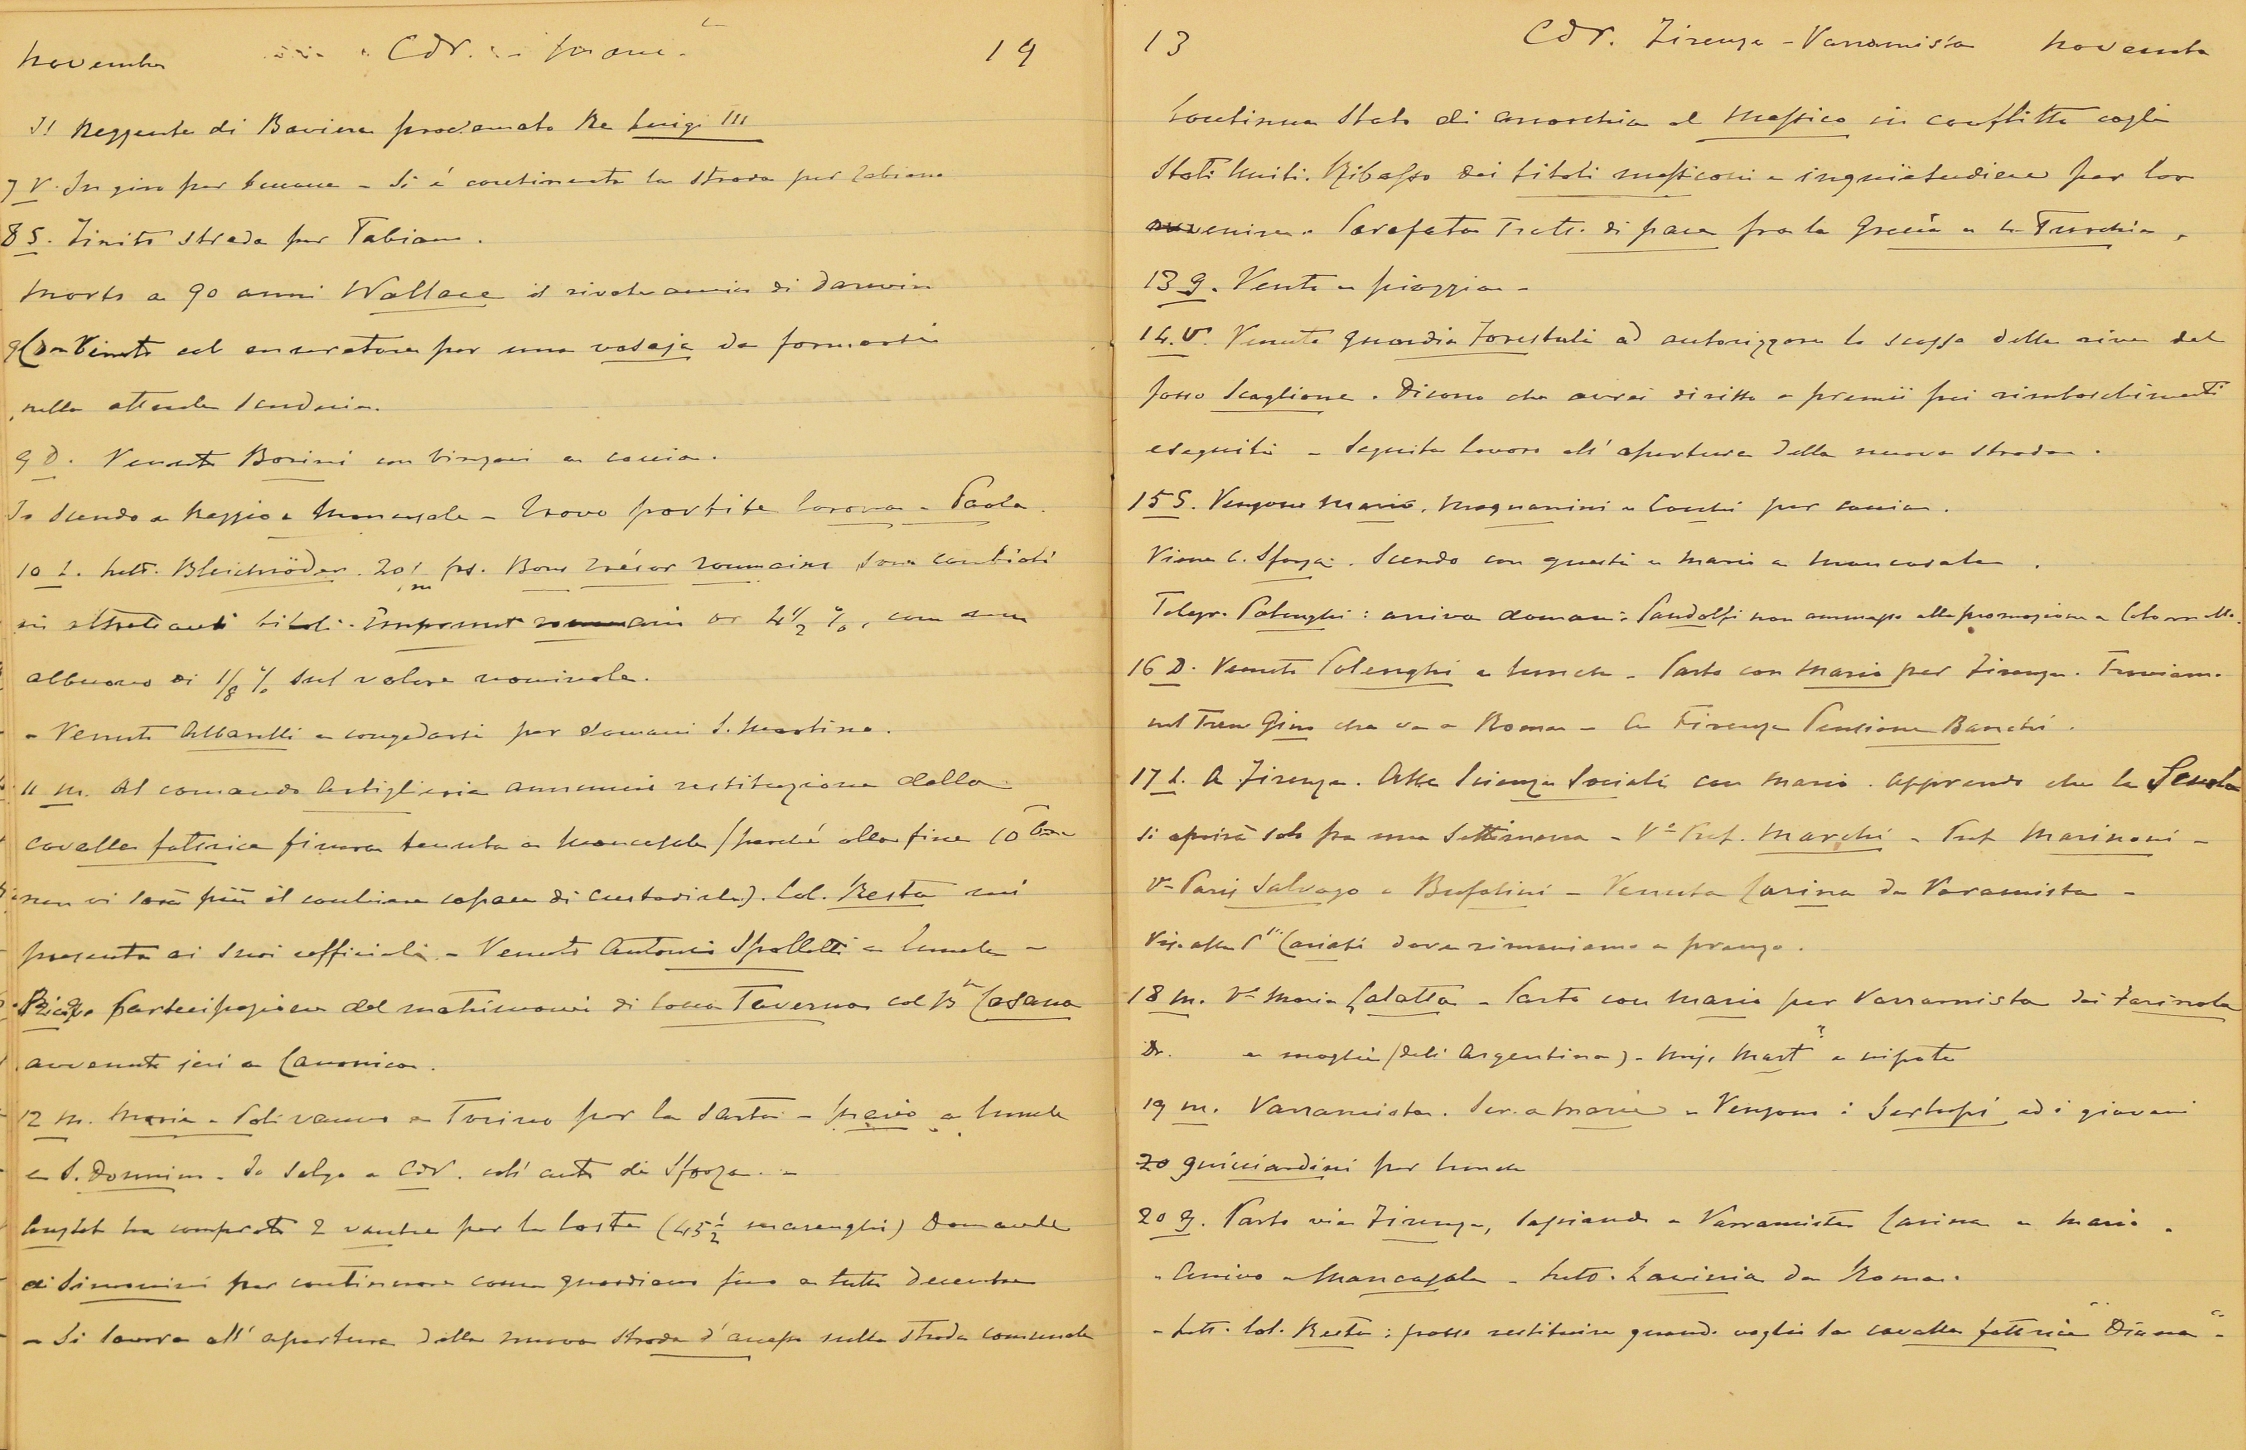 November CdV. 19
Il Reggente di Baviera proclamato Re Luigi III
7 V. In giro per - Si é continuata la strada per Tabiano
8 S. Finita strada per Tabiano.
Morto a 90 anni Wallace il rivale amico di Darwin
per una vasaja da formarsi
nella scuderia.
9 D. Venuti Borini con Vinzani a caccia.
Io scendo a Reggio e Mancasale - Trovo partite Corona - Paola.
10 L. Lett. Bleichröder. 20/m frs. Bons trésor roumains sono cambiati
in altrettanti titoli. Emprunt roumain or 4 1/2 %, con un
abbuono di 1/8 % sul valore nominale.
- Venuto Albarelli a congedarsi per domani S. Martino.
11 M. Al comando Artiglieria annuncio restituzione della
cavalla fattrice finora tenuta a Mancasale (perché alla fine Xbre
non vi sarà più il capace di custodirla). Col. Resta mi
presenta ai suoi ufficiali. - Venuto Antonio Spalletti a lunch -
partecipazione del matrimonio di Taverna col Bne Casana
avvenuto jeri a Canonica.
12 M. Maria - Poli vanno a Torino per la Sarta - Mario a lunch
a S. Donnino. Io salgo a CdV. coll' auto di Sforza. -
ha comprato 2 vacche per la Costa (45 1/2 marenghi) Domanda
di Simonini per continuare come guardiano fino a tutto Decembre
- Si lavora all' apertura della nuova strada d'accesso sulla strada comunale
13 CdV. Firenze - Varramista November
Continua stato di anarchia al Messico in conflitto cogli
Stati Uniti. Ribasso dei titoli messicani e inquietudine per l'av
venire. Parafato Tratt. di pace fra la Grecia e la Turchia.
13 G. Vento e pioggia -
14. V. Venute Guardie Forestali ad autorizzare la delle rive del
fosso Scaglione. Dicono che avrei diritto a premii pei rimboschimenti
eseguiti - Seguita lavoro all' apertura della nuova strada.
15 S. Vengono Mario, Magnanini e Cocchi per caccia.
Viene C. Sforza. Scendo con questi e Mario a Mancasale.
Telegr. Polenghi: arriva domani: Pandolfi non ammesso alla promozione a Colonnello.
16 D. Venuto Polenghi a lunch - Parto con Mario per Firenze. Troviamo
nel Treno Gino che va a Roma - A Firenze Pensione Banchi.
17 L. A Firenze. Alle Scienze Sociali con Mario. Apprendo che la Scuola
si aprirà solo fra una settimana - Va Prof. Marchi - Prof Marinoni -
Va Paris Salvago e Bufalini - Venuta Carina da Varamista -
Vis. alla Pssa Cariati dove rimaniamo a pranzo.
18 M. Va Maria Calatta - Parto con Mario per Varramista dai Farinola
Dr. e moglie (dell' Argentina) - Miss Mart ? e nipote
19 M. Varramista. Scr. a Maria - Vengono: Serlupi ed i giovani
20 Guicciardini per lunch
20 G. Parto via Firenze, lasciando a Varramista Carina e Mario.
- Arrivo a Mancasale - Lett. Lavinia da Roma.
- Lett. Col. Resta: posso restituire quando voglio la cavalla fattrice "Diana" -